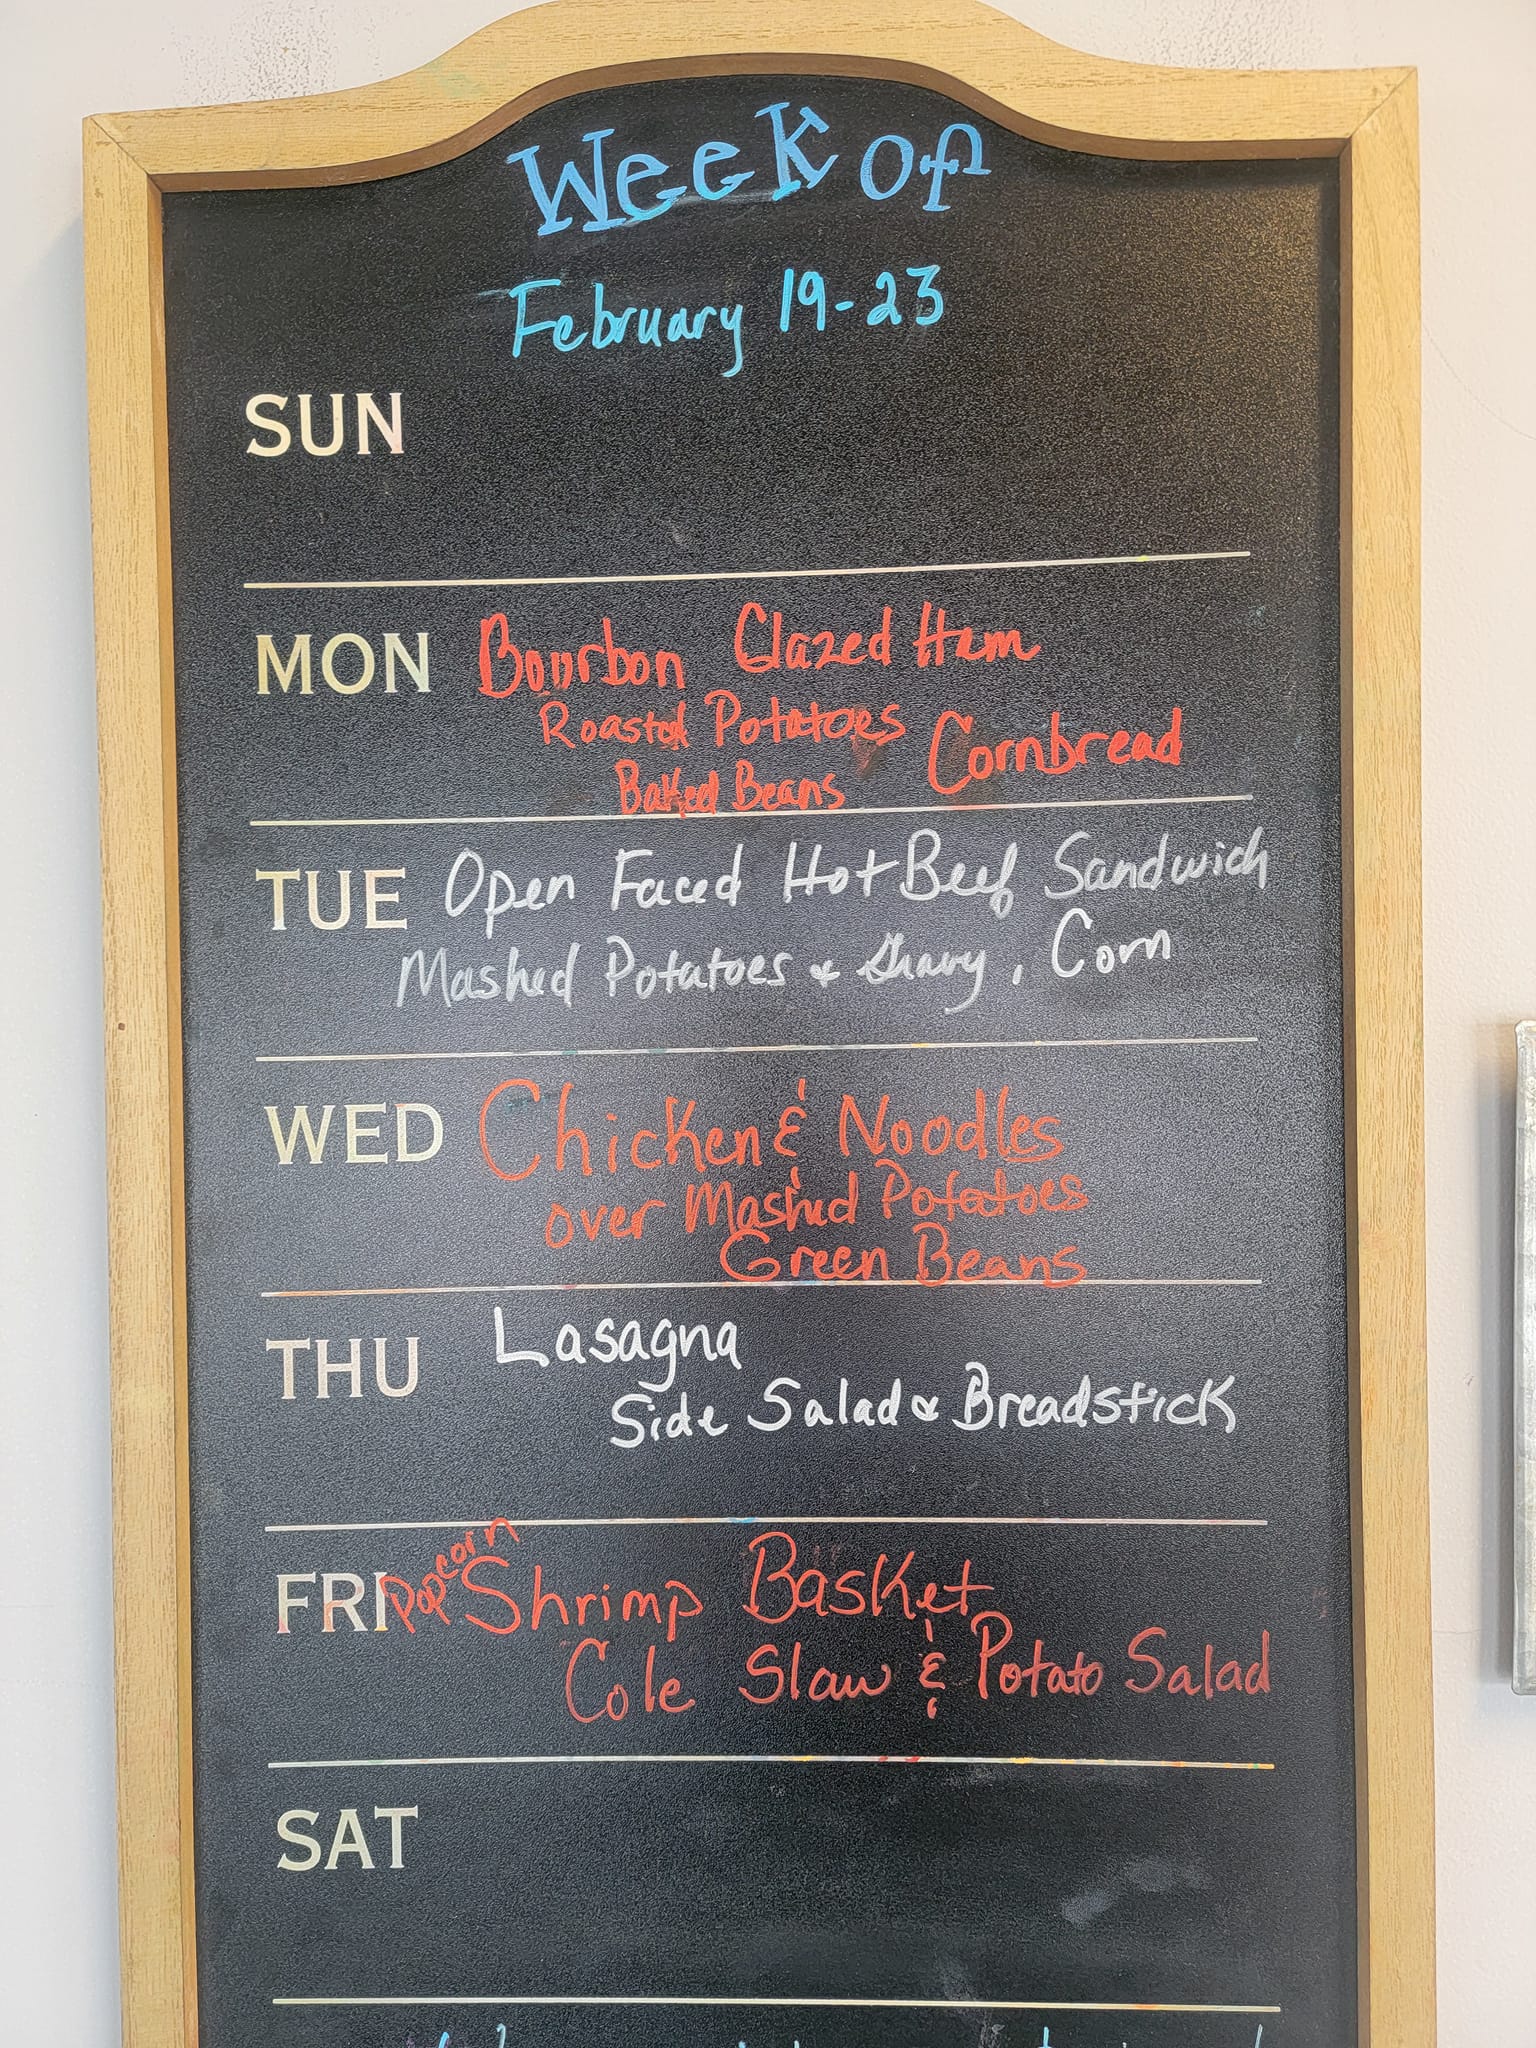 Week of
February 19-23
SUN
MON Bourbon Glazed Ham
Roasted Potatoes Cornbread
Baked Beans
TUE Open Faced Hot Beef Sandwich
Mashed Potatoes & Gravy, Corn
WED Chicken & Noodles
over Mashed Potatoes
Green Beans
THU Lasagna
Side Salad & Breadstick
FRI Popcorn Shrimp Basket
Cole Slaw & Potato Salad
SAT